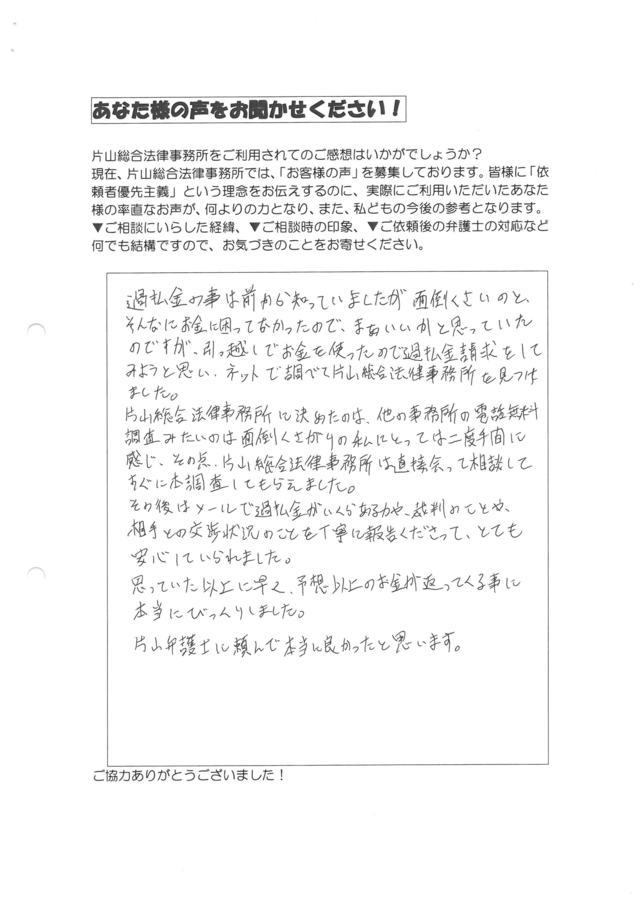 あなた様の声をお聞かせください！
片山総合法律事務所をご利用されてのご感想はいかがでしょうか？
現在、片山総合法律事務所では、「お客様の声」を募集しております。皆様に「依
頼者優先主義」という理念をお伝えするのに、実際にご利用いただいたあなた
様の率直なお声が、何よりの力となり、また、私どもの今後の参考となります。
▼ご相談にいらした経緯、▼ご相談時の印象、▼ご依頼後の弁護士の対応など
何でも結構ですので、お気づきのことをお寄せください。
過払金の事は前から知っていましたが面倒くさいのと、
そんなにお金に困ってなかったので、まぁいいかと思っていた
のですが、引っ越しでお金を使ったので過払金請求をして
みようと思い、ネットで調べて片山総合法律事務所を見つけ
ました。
片山総合法律事務所に決めたのは、他の事務所の電話無料
調査みたいのは面倒くさがりの私にとっては二度手間に
感じ、その点、片山総合法律事務所は直接会って相談して
すぐに本調査してもらえました。
その後はメールで過払金がいくらあるかや、裁判のことや、
相手との交渉状況のことを丁寧に報告くださって、とても
安心していられました。
思っていた以上に早く、予想以上のお金が返ってくる事に
本当にびっくりしました。
片山弁護士に頼んで本当に良かったと思います。
ご協力ありがとうございました！